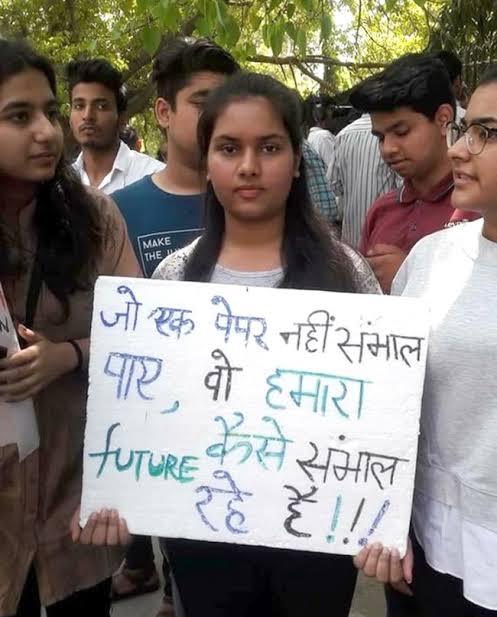 जो एक पेपर नहीं संभाल
पाए, वो हमारा
FUTURE कैसे संभाल
रहे है!!!
MAKE
THE